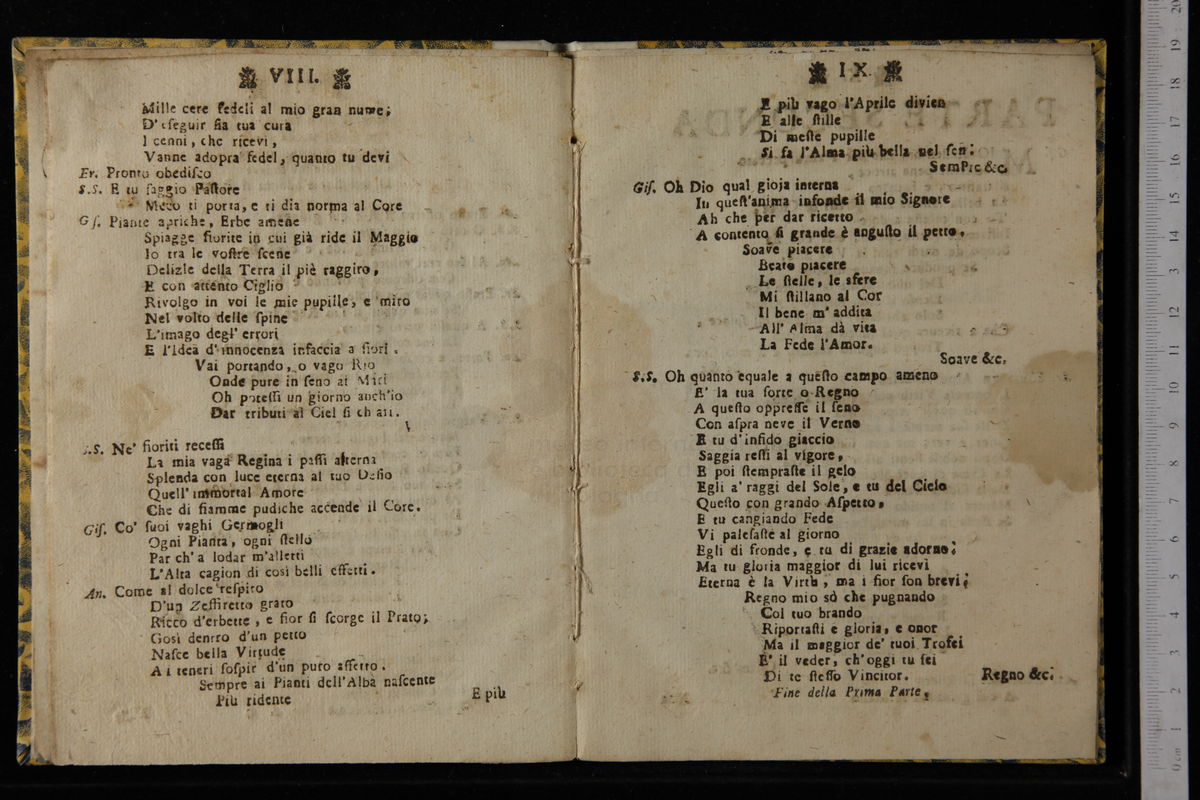 VIII.
Mille cere fedeli al mio gran nume;
D'eseguir sia tua cura
I cenni, che ricevi,
Vanne adopra fedel, quanto tu devi
Er. Pronto obedisco
S.S. E tu saggio Pastore
Meco ti porta, e ti dia norma al Core
Gis. Piante apriche, Erbe amene
Spiagge fiorite in cui già ride il Maggio
Io tra le vostre scene
Delizie della Terra il piè raggiro,
E con attento Ciglio
Rivolgo in voi le mie pupille, e miro
Nel volto delle spine
L'imago degl' errori
E l'Idea d'innocenza infaccia a fiori.
Vai portando, o vago Rio
Onde pure in seno ai Miri
Oh potessi un giorno anch'io
Dar tributi al Ciel si
S.S. Ne' fioriti recessi
La mia vaga Regina i passi alterna
Splenda con luce eterna al tuo Desio
Quell' immortal Amore
Che di fiamme pudiche accende il Core.
Gis. Co' suoi vaghi Germogli
Ogni Pianta, ogni stello
Par ch'a lodar m'alletti
L'Alta cagion di così belli effetti.
An. Come al dolce respiro
D'un Zeffiretto grato
Ricco d'erbette, e fior si scorge il Prato;
Gosì dentro d'un petto
Nasce bella Virtude
A i teneri sospir d'un puro affetto.
Sempre ai Pianti dell'Alba nascente
Più ridente
E più
IX.
E più vago l'Aprile divien
E alle stille
Di meste pupille
Si fa l'Alma più bella nel sen:
Sempre &c.
Gis. Oh Dio qual gioja interna
In quest'anima infonde il mio Signore
Ah che per dar ricetto
A contento sì grande è angusto il petto.
Soave piacere
Beato piacere
Le stelle, le sfere
Mi stillano al Cor
Il bene m'addita
All' Alma dà vita
La Fede l'Amor.
Soave &c.
S.S. Oh quanto equale a questo campo ameno
E' la tua sorte o Regno
A questo oppresse il seno
Con aspra neve il Verno
E tu d'infido giaccio
Saggia resti al vigore,
E poi stempraste il gelo
Egli a' raggi del Sole, e tu del Cielo
Questo con grando Aspetto,
E tu cangiando Fede
Vi palesaste al giorno
Egli di fronde, e tu di grazie adorno;
Ma tu gloria maggior di lui ricevi
Eterna è la Virtù, ma i fior son brevi;
Regno mio sò che pugnando
Col tuo brando
Riportasti e gloria, e onor
Ma il maggior de' tuoi Trofei
E' il veder, ch'oggi tu sei
Di te stesso Vincitor.
Regno &c.
Fine della Prima Parte,